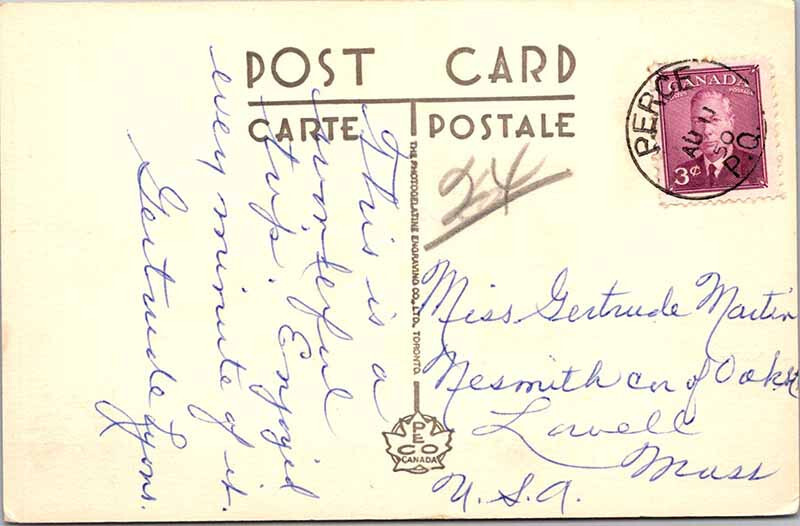 POST CARD
CARTE POSTALE
This is a
wonderful
trip. Enjoyed
every minute of it.
Gertrude Lyons.
THE PHOTOGELATINE ENGRAVING CO., LTD. TORONTO
PECO
CANADA
24
CANADA
3¢
PERCE
AU
50
P.Q.
Miss Gertrude Martin
Nesmith cor of Oak
Lowell
Mass
U.S.A.